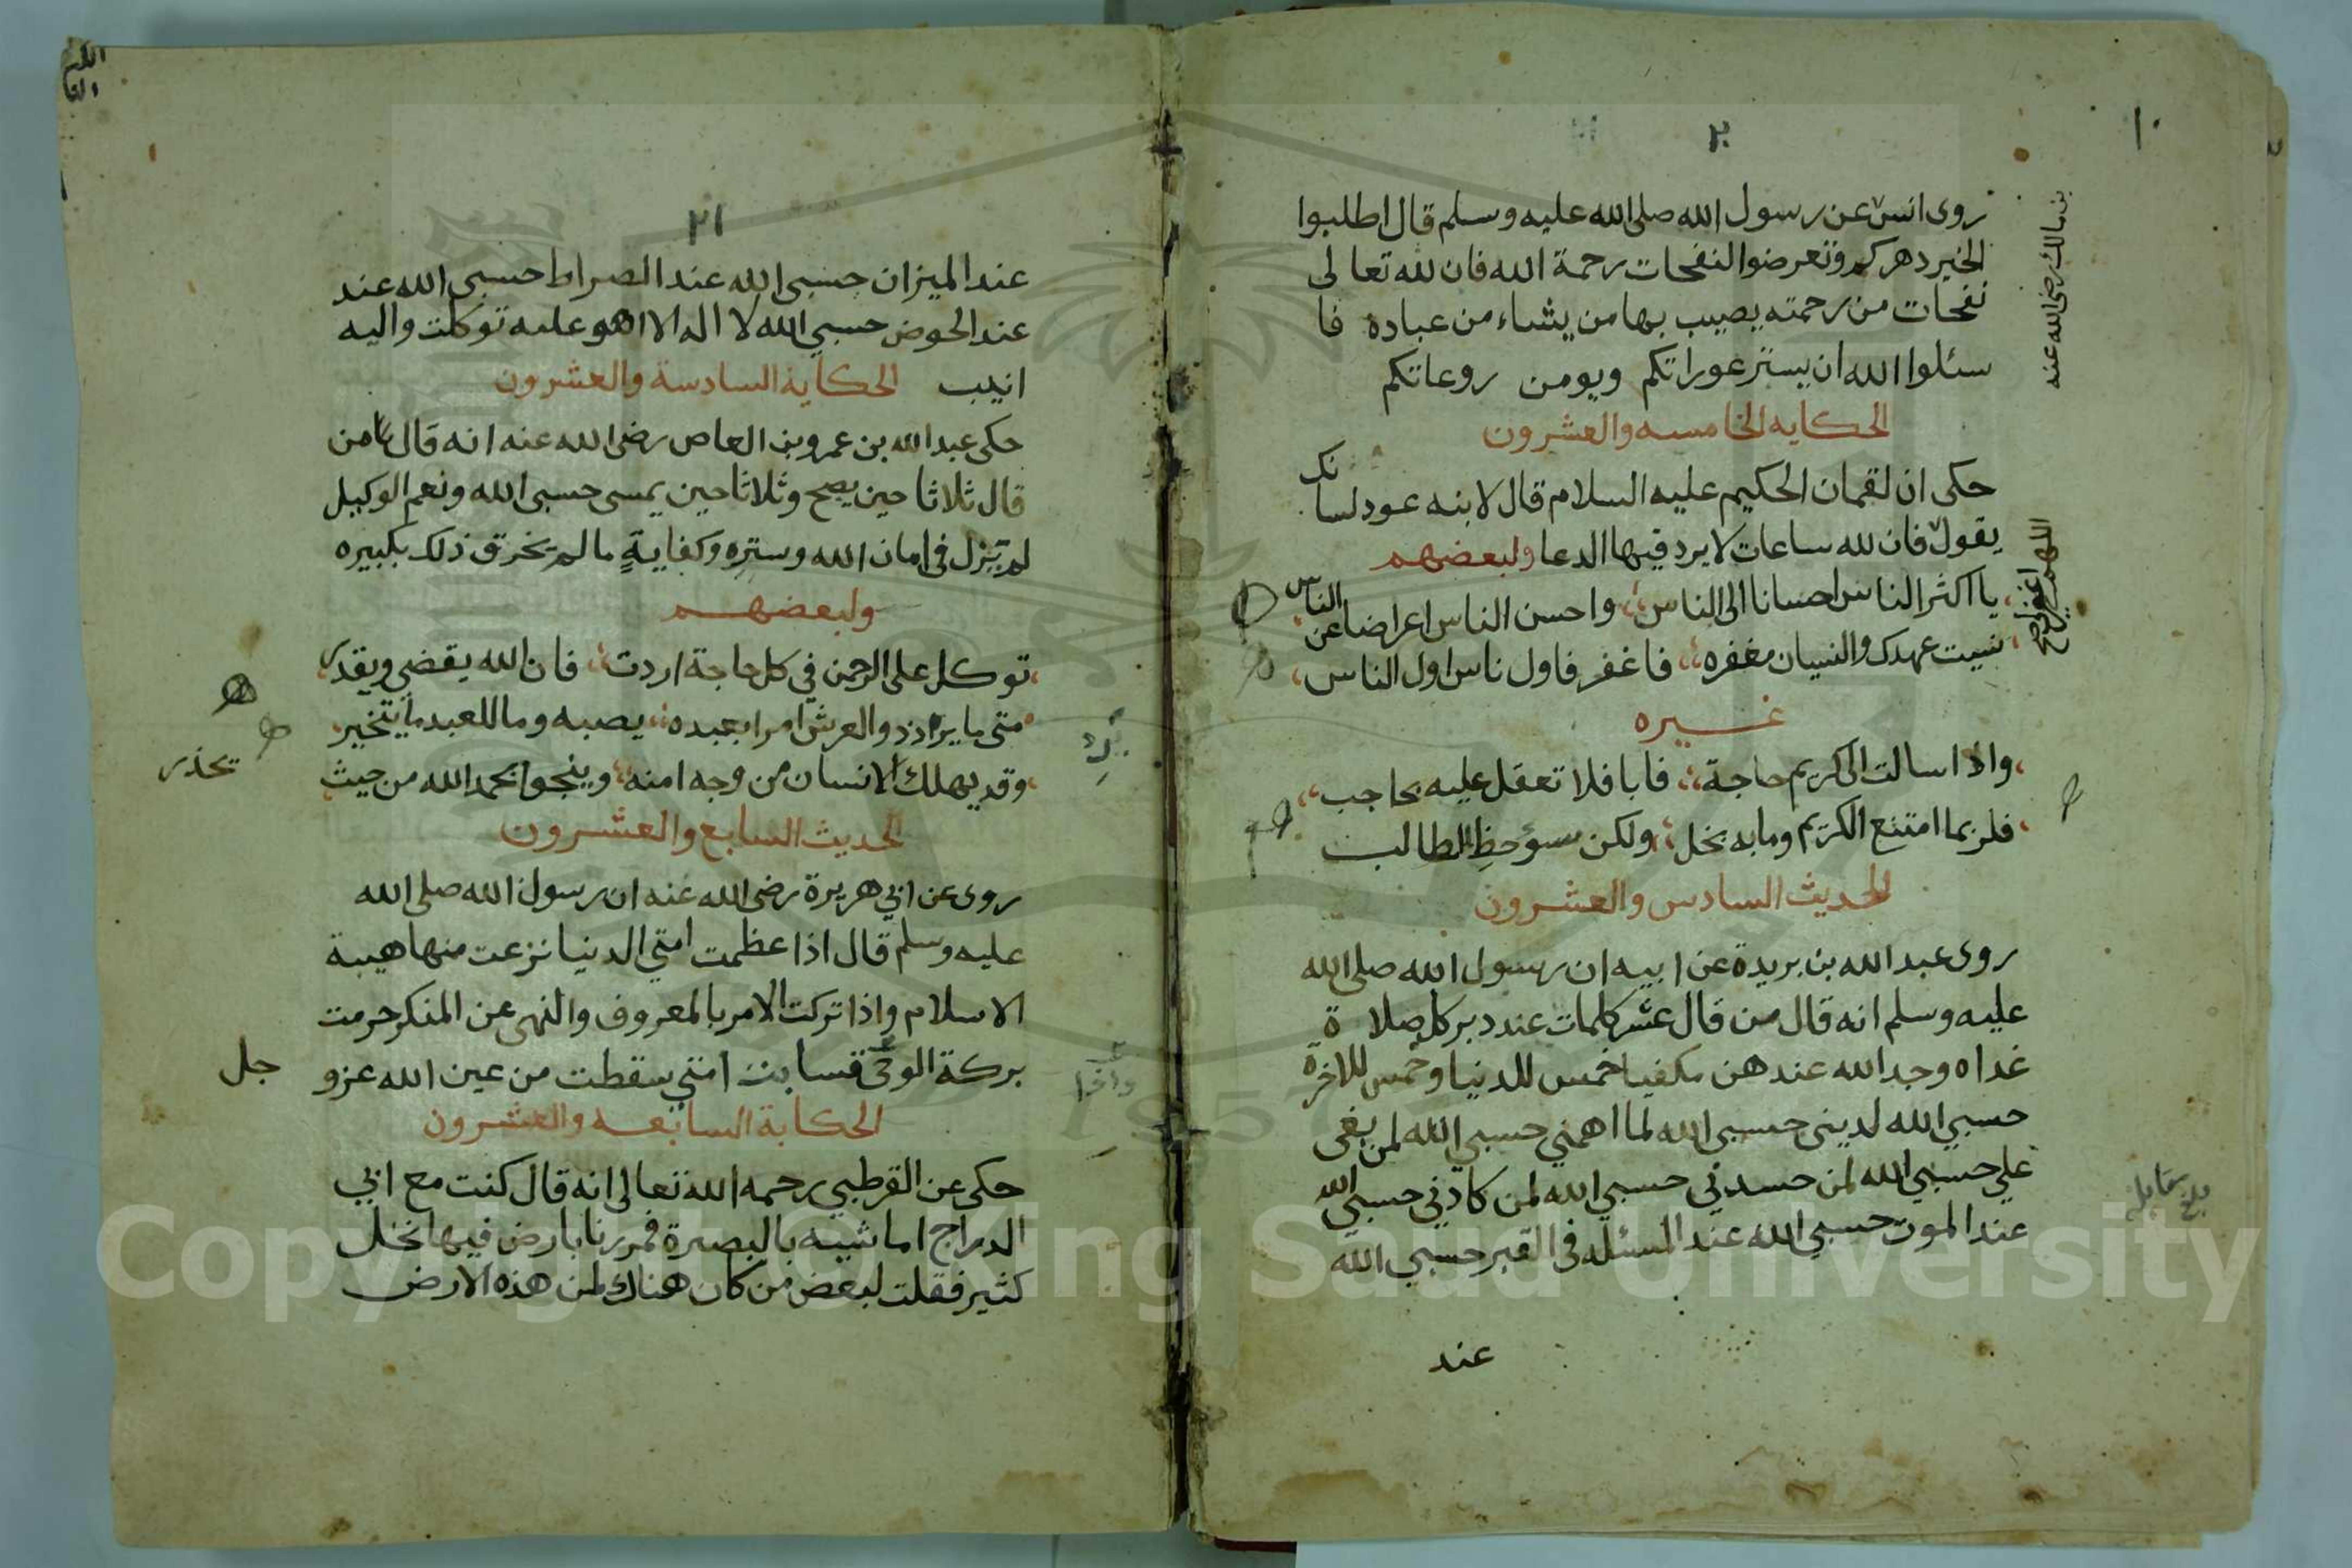 ١٠
٢٠
روى انس عن رسول الله صلى الله عليه وسلم قال اطلبوا
بن مالك رضى الله عنه
الخير دهركم وتعرضوا النفحات رحمة الله فان لله تعالى
نفحات من رحمته يصيب بها من يشاء من عباده فا
سئلوا الله ان يستر عوراتكم ويومن روعاتكم
الحكايه الخامسه والعشرون
حكى ان لقمان الحكيم عليه السلام قال لابنه عود لسانك
يقول فان لله ساعات لا يرد فيها الدعا ولبعضهم
اللهم اغفرلى صح
يا اكثر الناس احسانا الى الناس واحسن الناس اعراضا عن الناس
نسيت عهدك والنسيان مغفره فاغفر فاول ناس اول الناس
غيره
واذا سالت الى كريم حاجة فابا فلا تعقل عليه بحاجب
فلربما امتنع الكريم ومابه بخل ولكن سوء حظ الطالب
الحديث السادس والعشرون
روى عبد الله بن بريدة عن ابيه ان رسول الله صلى الله
عليه وسلم انه قال من قال عشر كلمات عند دبر كل صلاة
غداه وجد الله عندهن مكفيا خمس للدنيا وخمس للاخرة
حسبي الله لدينى حسبى الله لما اهمني حسبي الله لمن بغى
علي حسبي الله لمن حسدني حسبي الله لمن كادني حسبي الله
عند الموت حسبي الله عند المسئله في القبر حسبي الله
بلغ مقابلة
عند
٢١
عند الميزان حسبى الله عند الصراط حسبى الله عند
عند الحوض حسبي الله لا اله الا هو عليه توكلت واليه
انيب الحكاية السادسة والعشرون
حكى عبد الله بن عمرو بن العاص رضى الله عنه انه قال من
قال ثلاثا حين يصبح وثلاثا حين يمسى حسبى الله ونعم الوكيل
لم يزل فى امان الله وستره وكفاية ما لم يخرق ذلك بكبيره
ولبعضهم
توكل على الرحمن في كل حاجة اردت فان الله يقضي ويقدر
متى ما يرد ذو العرش امرا بعبده يصبه وما للعبد ما يتخير
وقد يهلك الانسان من وجه امنه وينجوا بحمد الله من حيث
يحذر
الحديث السابع والعشرون
روى عن ابي هريرة رضى الله عنه ان رسول الله صلى الله
عليه وسلم قال اذا عظمت امتي الدنيا نزعت منها هيبة
الاسلام واذا تركت الامر بالمعروف والنهى عن المنكر حرمت
بركة الوحى تسابت امتي سقطت من عين الله عز و
جل
الحكاية السابعه والعشرون
حكى عن القرطبي رحمه الله تعالى انه قال كنت مع ابي
الدراج اماشيه بالبصرة فمررنا بارض فيها نخل
كثير فقلت لبعض من كان هناك لمن هذه الارض
Copyright © King Saud University
1957